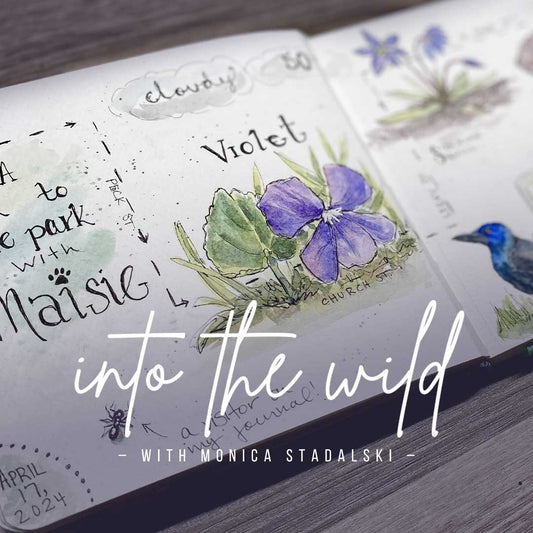 cloudy
50
Violet
A
to
park
with
Maisie
CHURCH ST.
into the wild
a visitor
my journal!
– WITH MONICA STADALSKI –
APRIL
17,
2024